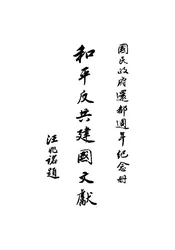 國民政府還都週年紀念冊
和平反共建國文獻
汪兆銘題